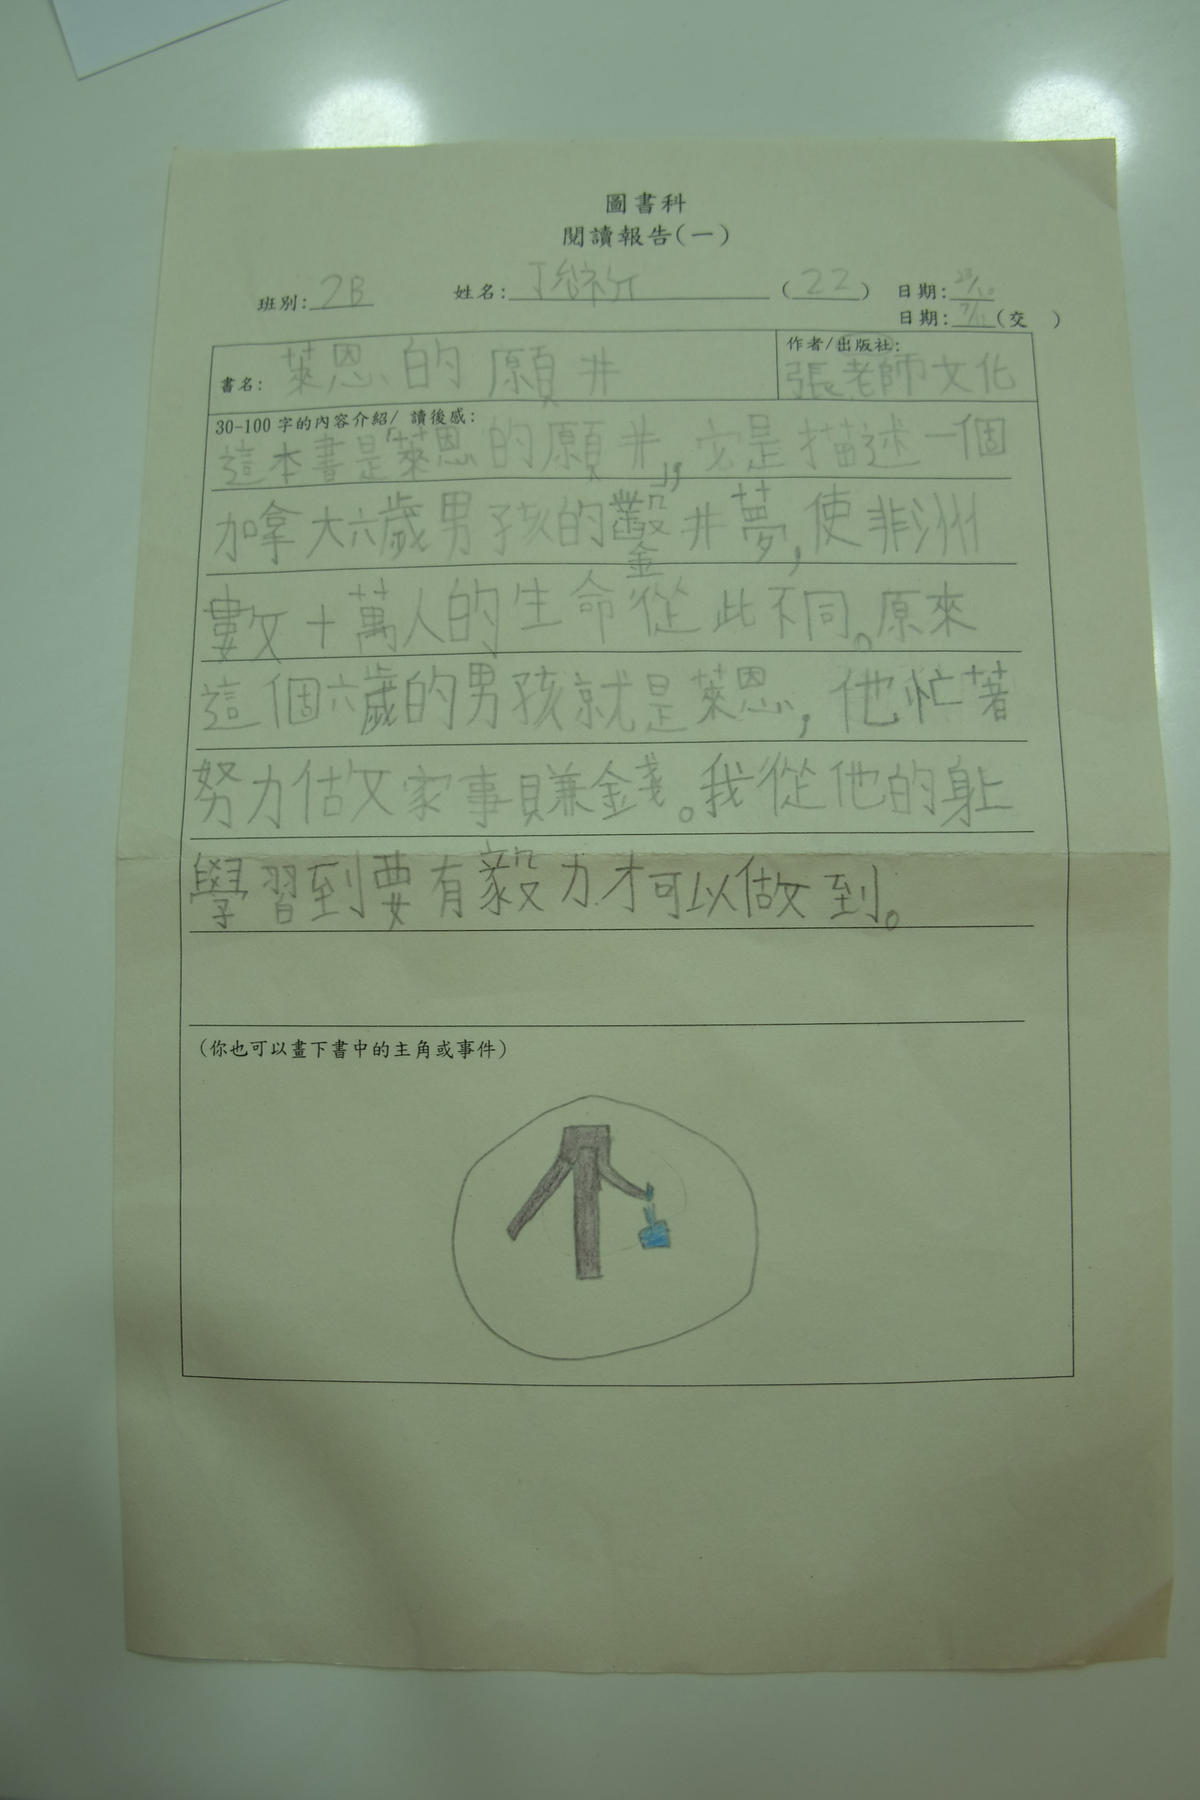 圖書科
閱讀報告(一)
班別: 2B 姓名: 丁 (22) 日期: 23/10
日期: 7/11 (交 )
書名: 萊恩的願井
作者/出版社: 張老師文化
30-100字的內容介紹/ 讀後感:
這本書是「萊恩的願井」，它是描述一個
加拿大六歲男孩的鑿井夢，使非洲
數十萬人的生命從此不同。原來
這個六歲的男孩就是萊恩，他忙著
努力做家事賺金錢。我從他的身上
學習到要有毅力才可以做到。
(你也可以畫下書中的主角或事件)